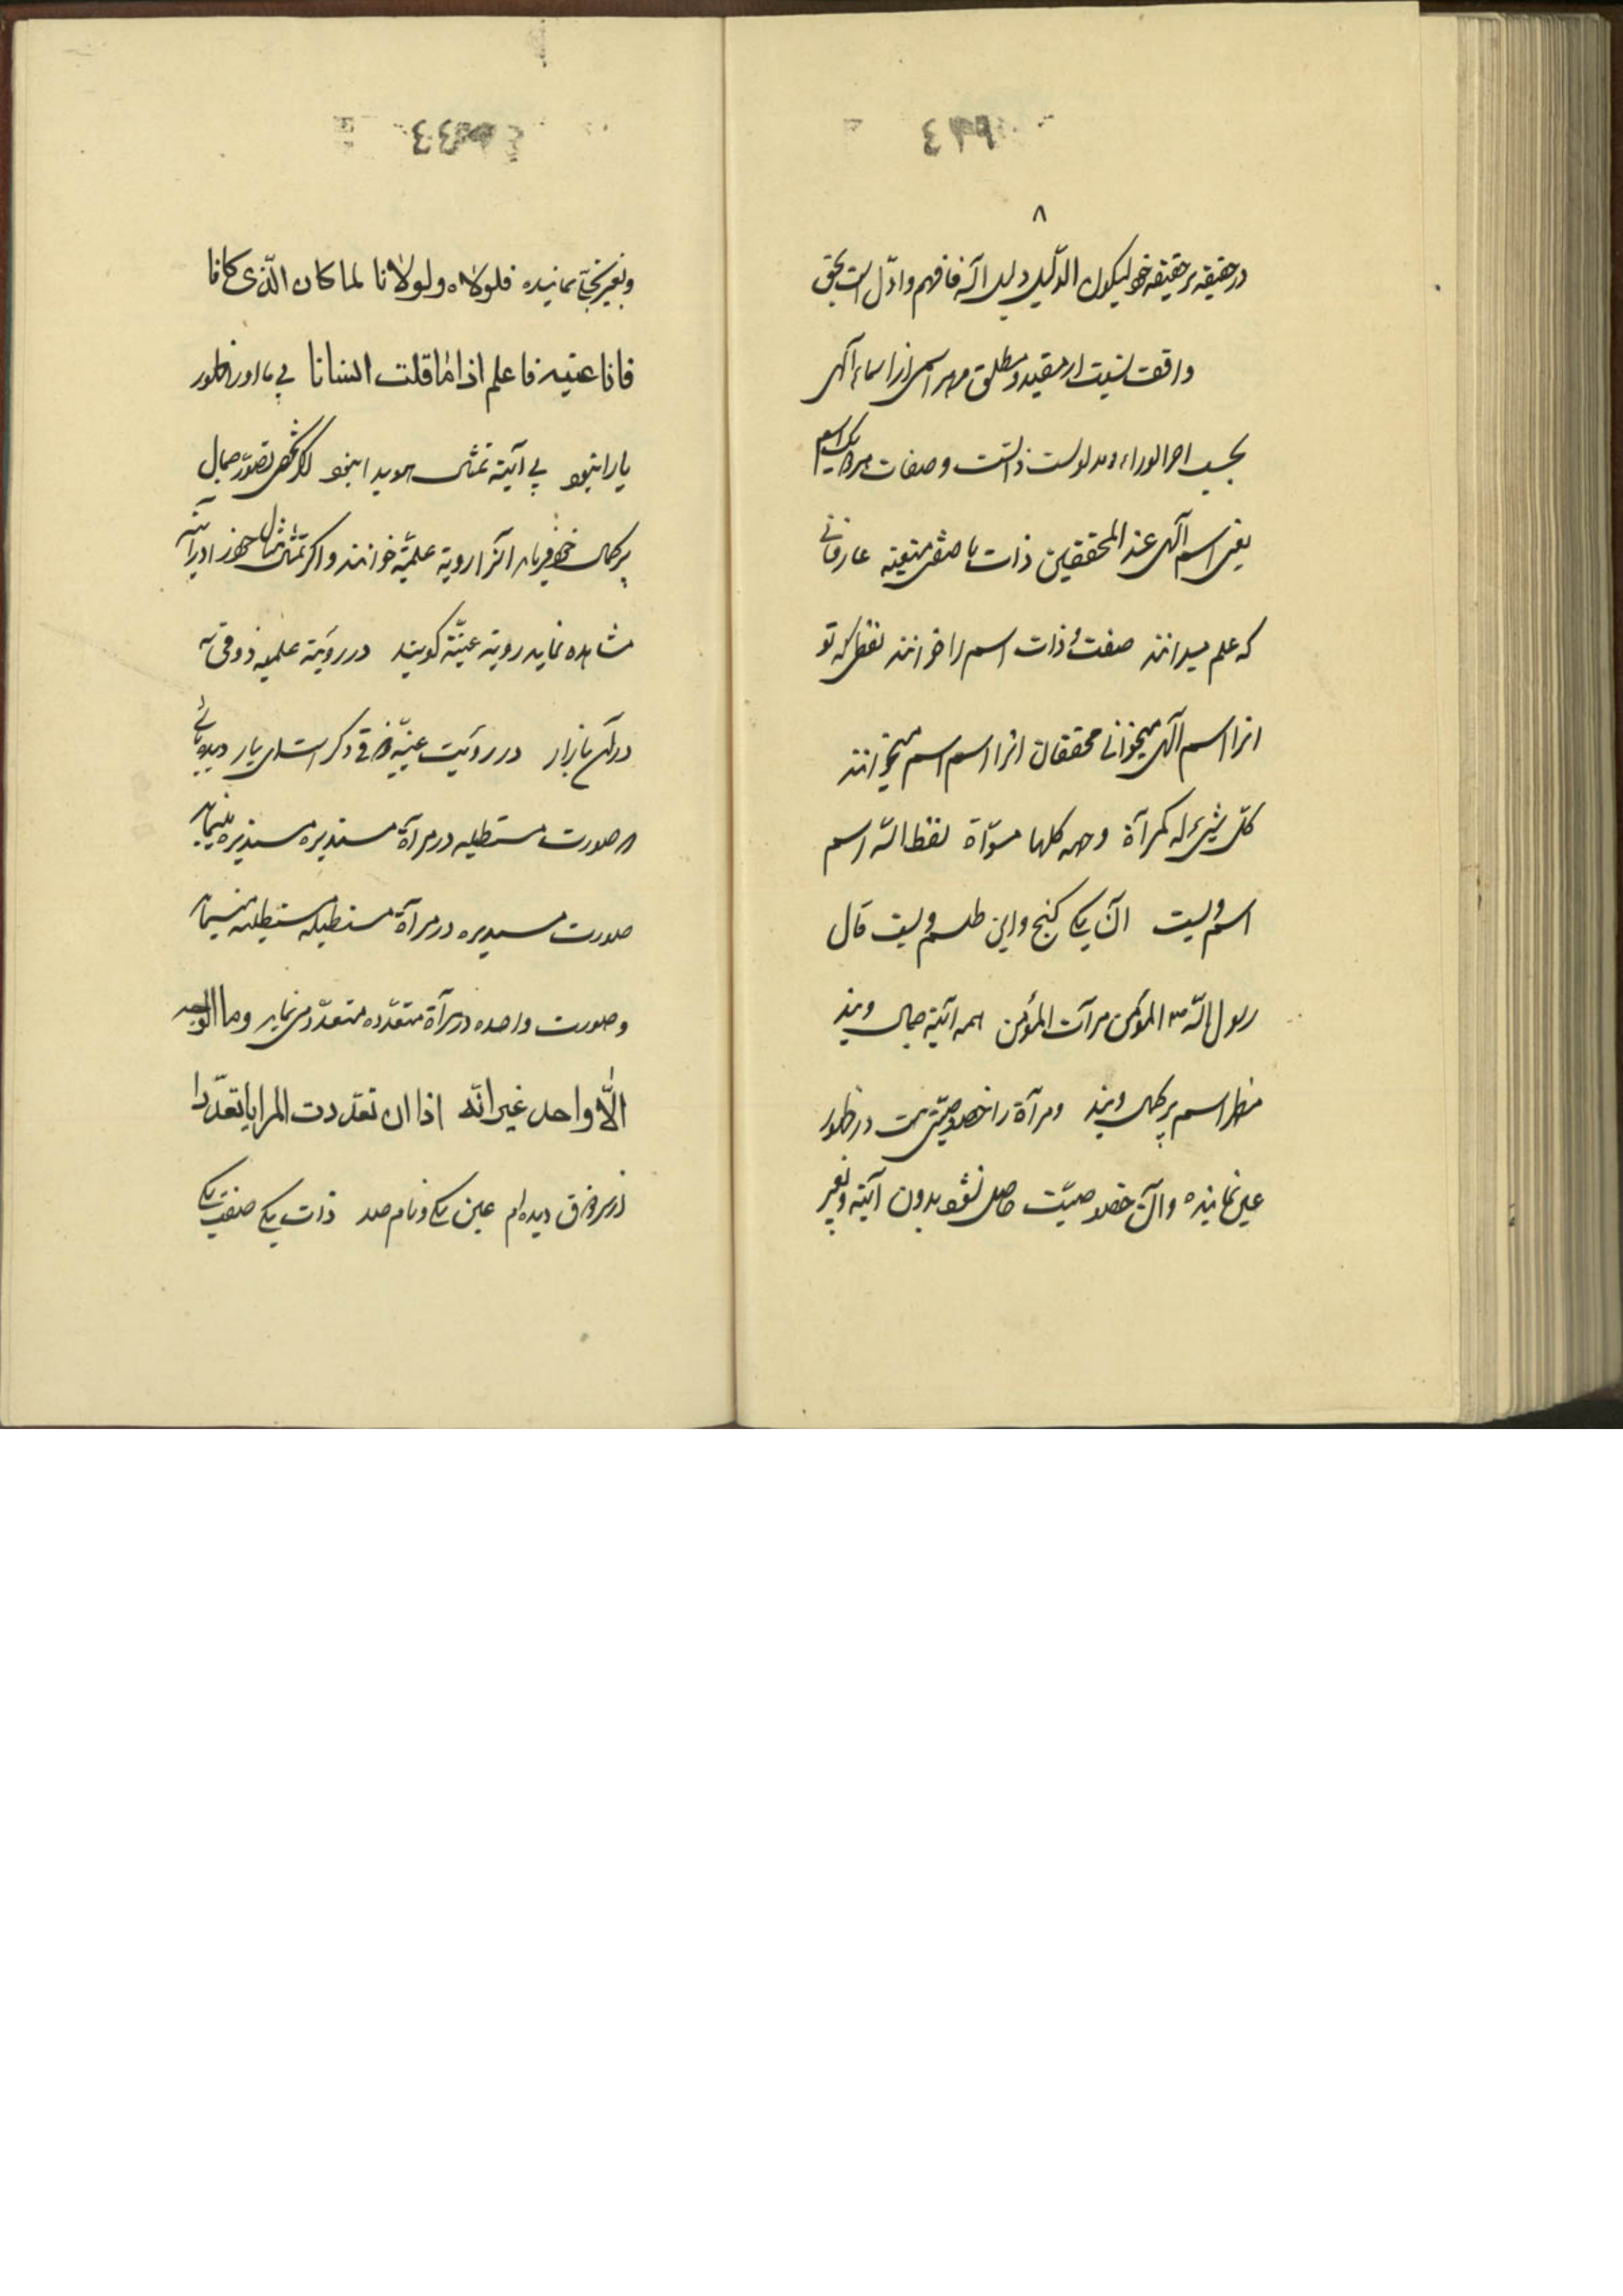 ٨
در حقیقه بر حقیقه خو لیکون الدلیل دلیل الله فافهم وادل است بحق
واقف نسبت از مقید و مطلق هر اسمی از اسماء الهی
بحسب الوراء و مدلولست ذاتست و صفات هر یک اسم
یعنی اسم الهی عند المحققین ذات با صفتی متعینه عارفانی
که علم میدانند صفت و ذات اسم را خوانند لفظی که تو
انرا اسم الهی میخوانی محققان انرا اسم اسم میخوانند
کل شیئ له کمرآة وجهه کلها مسواة لفظ الله اسم
اسم ویست آن یکی گنج و این طلسم ویست قال
رسول الله ص المؤمن مرآت المؤمن همه آئینه جمال ویند
مظهر اسم پرکمال ویند ومرآة را خصوصیتی هست در ظهور
عین نماینده وآن خصوصیت حاصل نشود بدون آینه وبغیر
وبغیر تجلی نماینده فلولاه ولولانا لما کان الذی کانا
فانا عینه فاعلم اذا ما قلت انسانا بی ما اور ظهور
یارا نبود بی آینه تمثال هویدا نبود اگر شخصی تصور جمال
پرکمال خود فرماید آنرا رویة علمیه خوانند واگر تمثال جمال خود را در آینه
مشاهده نماید رویة عینیه گویند در رویة علمیه ذوقی نه
در آن بازار در رویت عینیه ذوقی دگر است ای یار
صورت مستطیله در مرآة مستدیره مستدیره مینماید
صورت مستدیره در مرآة مستطیله مستطیله مینماید
وصورت واحده در مرآة متعدده متعدد می نماید وما الوجه
الا واحد غیر انه اذا ان تعددت المرایا تعددا
دیده ام عین یکی ونام صد ذات یکی صفت یکی